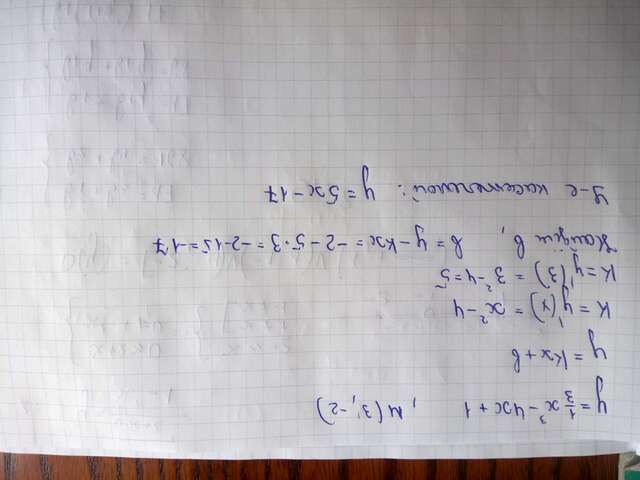 y = 1/3 x³ - 4x + 1 , M(3; -2)
y = kx + b
K = y'(x) = x² - 4
K = y'(3) = 3² - 4 = 5
Найдём b, b = y - kx = -2 - 5·3 = -2 - 15 = -17
У-е касательной: y = 5x - 17